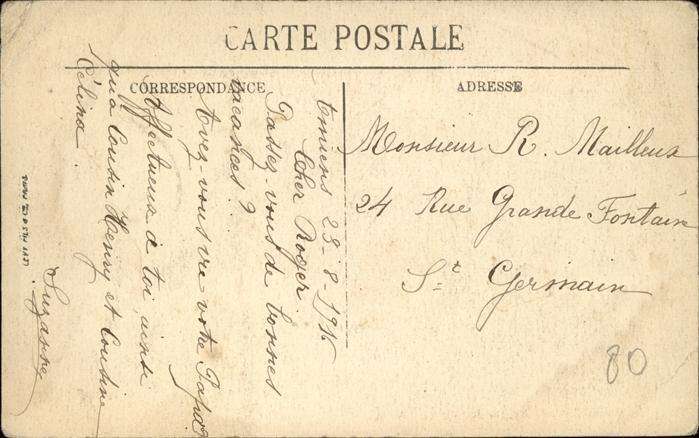 CARTE POSTALE
CORRESPONDANCE
ADRESSE
Amiens 23-8-1916
Cher Roger.
Passez vous de bonnes
vacances ?
Avez-vous vu votre Papa
Affectueux à toi, ainsi
qu'à Cousin Henry et Cousine
Célina.
Suzanne
Monsieur R. Mailleux
24 Rue Grande Fontain
St Germain
80
LEVY FILS & Cie PARIS